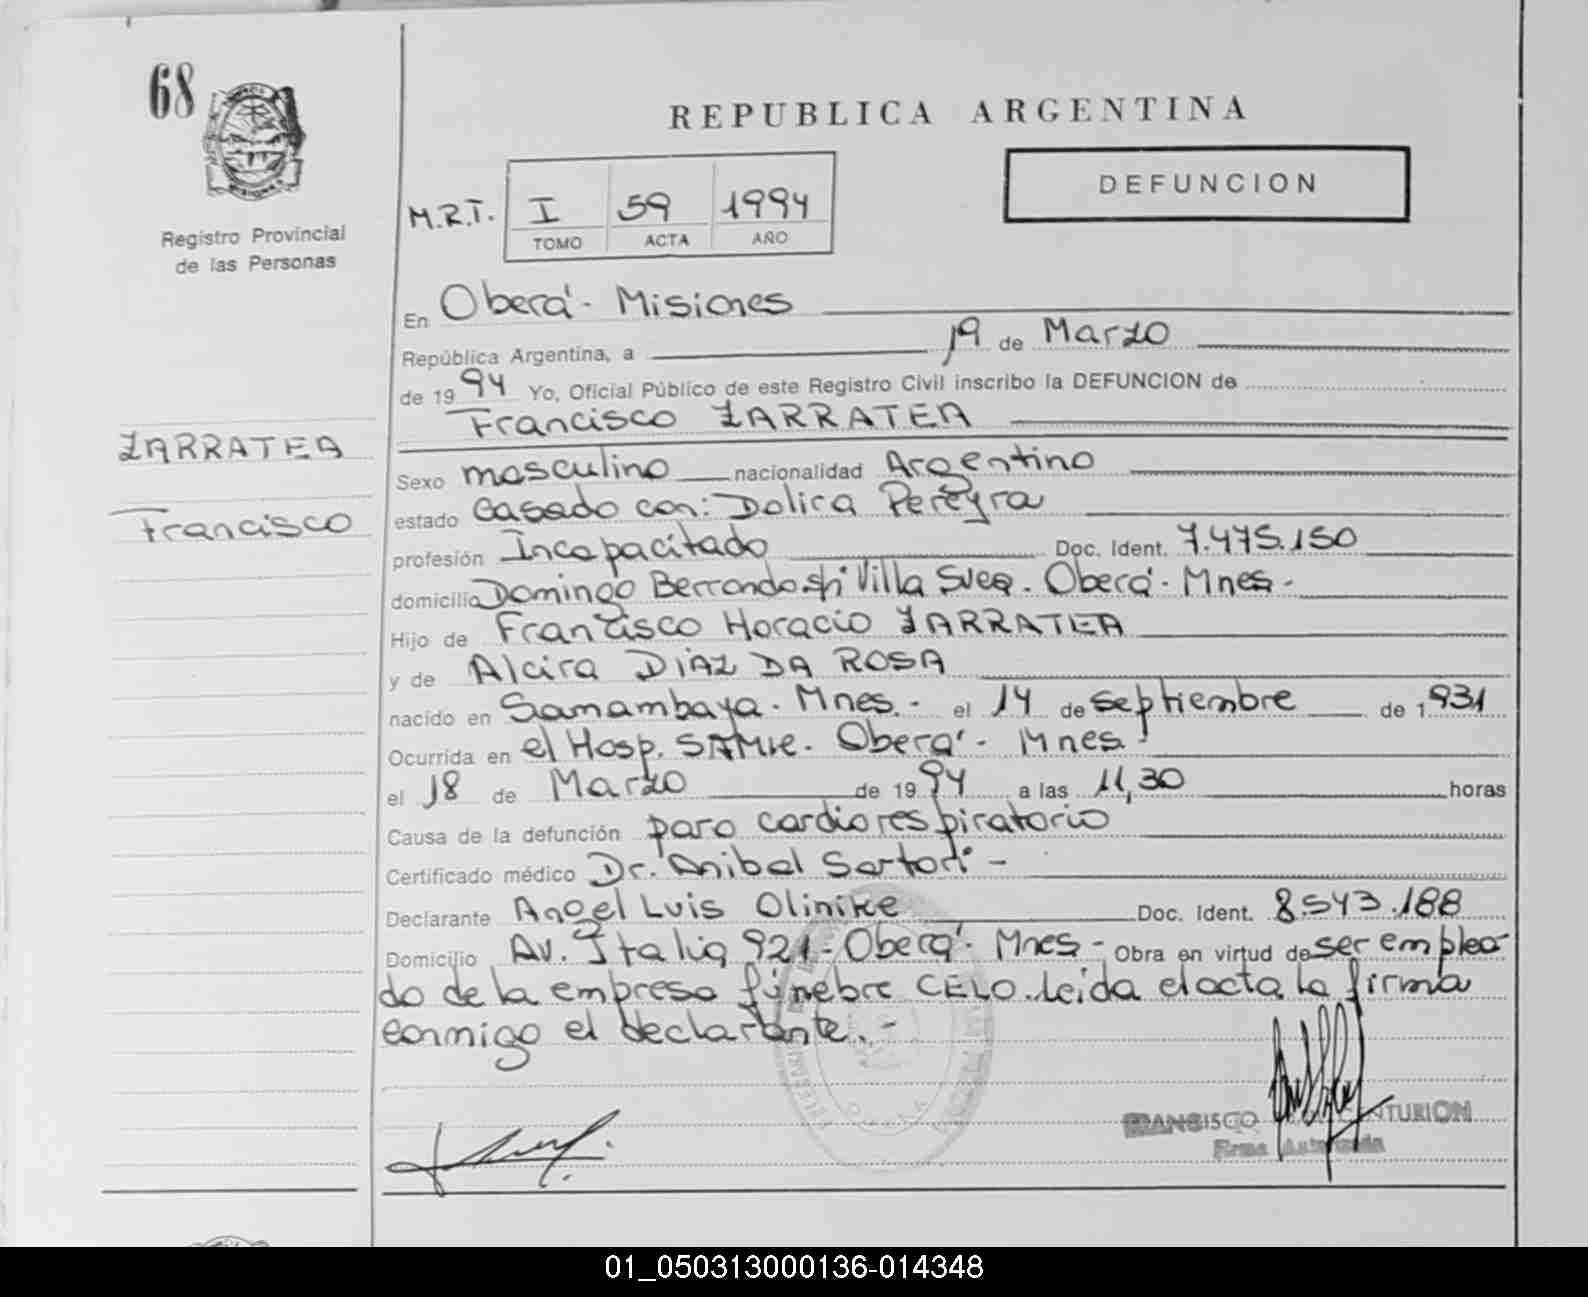 68
Registro Provincial
de las Personas
REPUBLICA ARGENTINA
DEFUNCION
M.R.T. I 59 1994
TOMO ACTA AÑO
ZARRATEA
Francisco
En Oberá - Misiones
República Argentina, a 19 de Marzo
de 1994 Yo, Oficial Público de este Registro Civil inscribo la DEFUNCION de
Francisco ZARRATEA
Sexo masculino nacionalidad Argentino
estado Casado con: Dolica Pereyra
profesión Incapacitado Doc. Ident. 7.475.150
domicilio Domingo Berrondo Villa Svea. Oberá - Mnes -
Hijo de Francisco Horacio ZARRATEA
y de Alcira DIAZ DA ROSA
nacido en Samambaya - Mnes. - el 14 de septiembre de 1931
Ocurrida en el Hosp. SAMIC. Oberá - Mnes.
el 18 de Marzo de 1994 a las 11,30 horas
Causa de la defunción paro cardiorespiratorio
Certificado médico Dr. Anibal Sartori -
Declarante Angel Luis Olinike Doc. Ident. 8.543.188
Domicilio Av. Italia 921 - Oberá - Mnes - Obra en virtud de ser emplea
do de la empresa fúnebre CELO. Leida el acta la firma
conmigo el declarante. -
Firma Autorizada
01_050313000136-014348